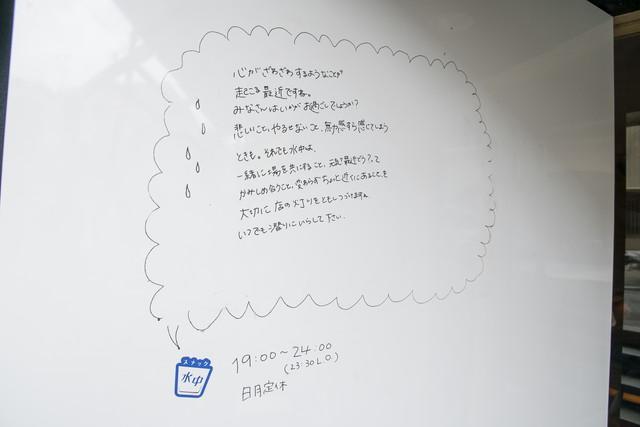 心がざわざわするようなことが
起こる最近ですね。
みなさんはいかがお過ごしでしょうか?
悲しいこと、やるせないこと、無力感すら感じてしまう
ときも。それでも水中は、
一緒に場を共にすること、元気?最近どう?って
かみしめ合うこと、変わらずちょっと近くにあることを
大切に店の灯りをともしつづけます。
いつでも潜りにいらして下さい。
スナック
水中
19:00〜24:00
(23:30 L.O.)
日月定休